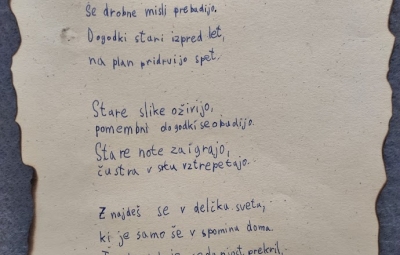 še drobne misli prebudijo.
Dogodki stari izpred let,
na plan pridrvijo spet.
Stare slike oživijo,
pomembni dogodki se obudijo.
Stare note zaigrajo,
čustva v srcu vztrepetajo.
Znajdeš se v delčku sveta,
ki je samo še v spomina doma.
prekril,